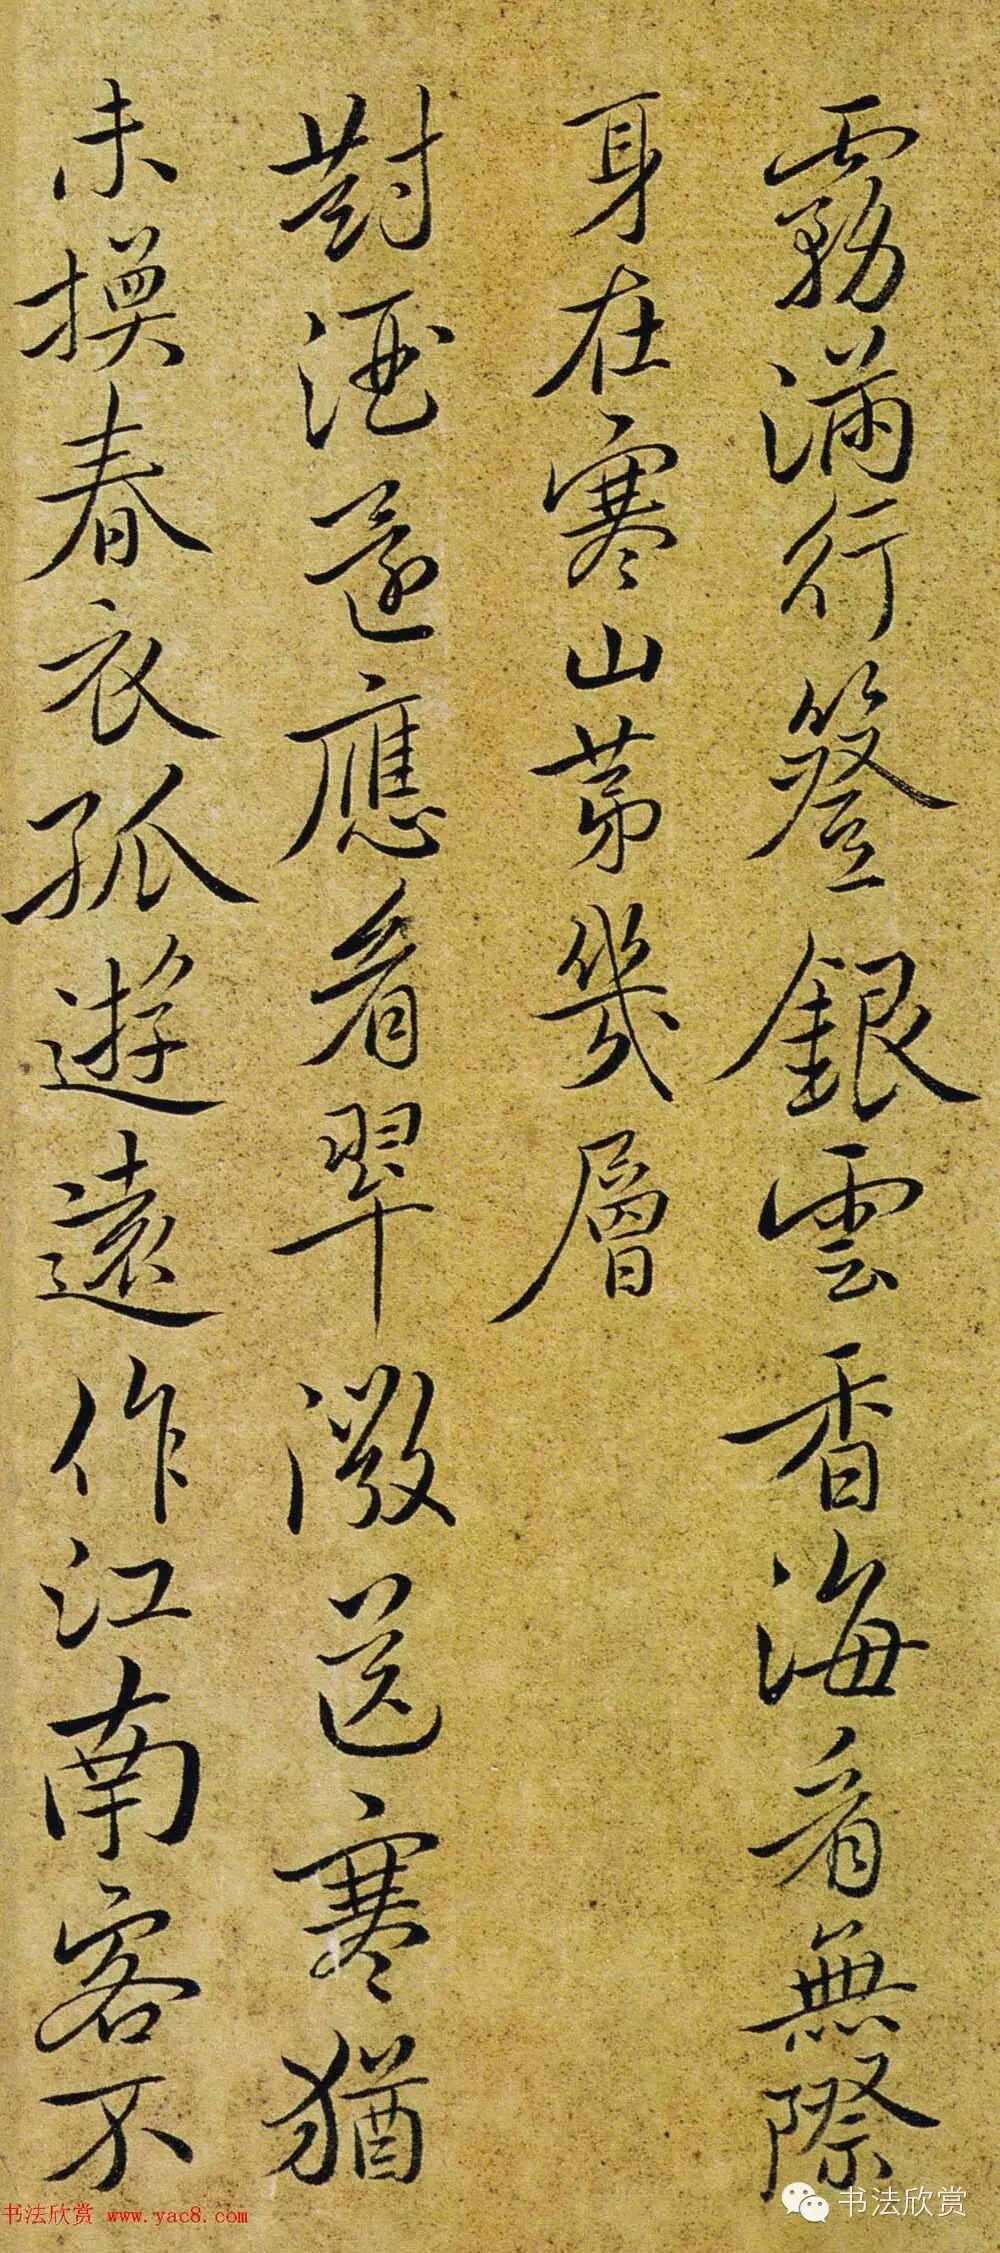 霧滿行簦銀雲香海看無際
身在寒山苐幾層
對酒還應看翠澂送寒猶
未換春衣孤遊遠作江南客不
书法欣赏 www.yac8.com
书法欣赏